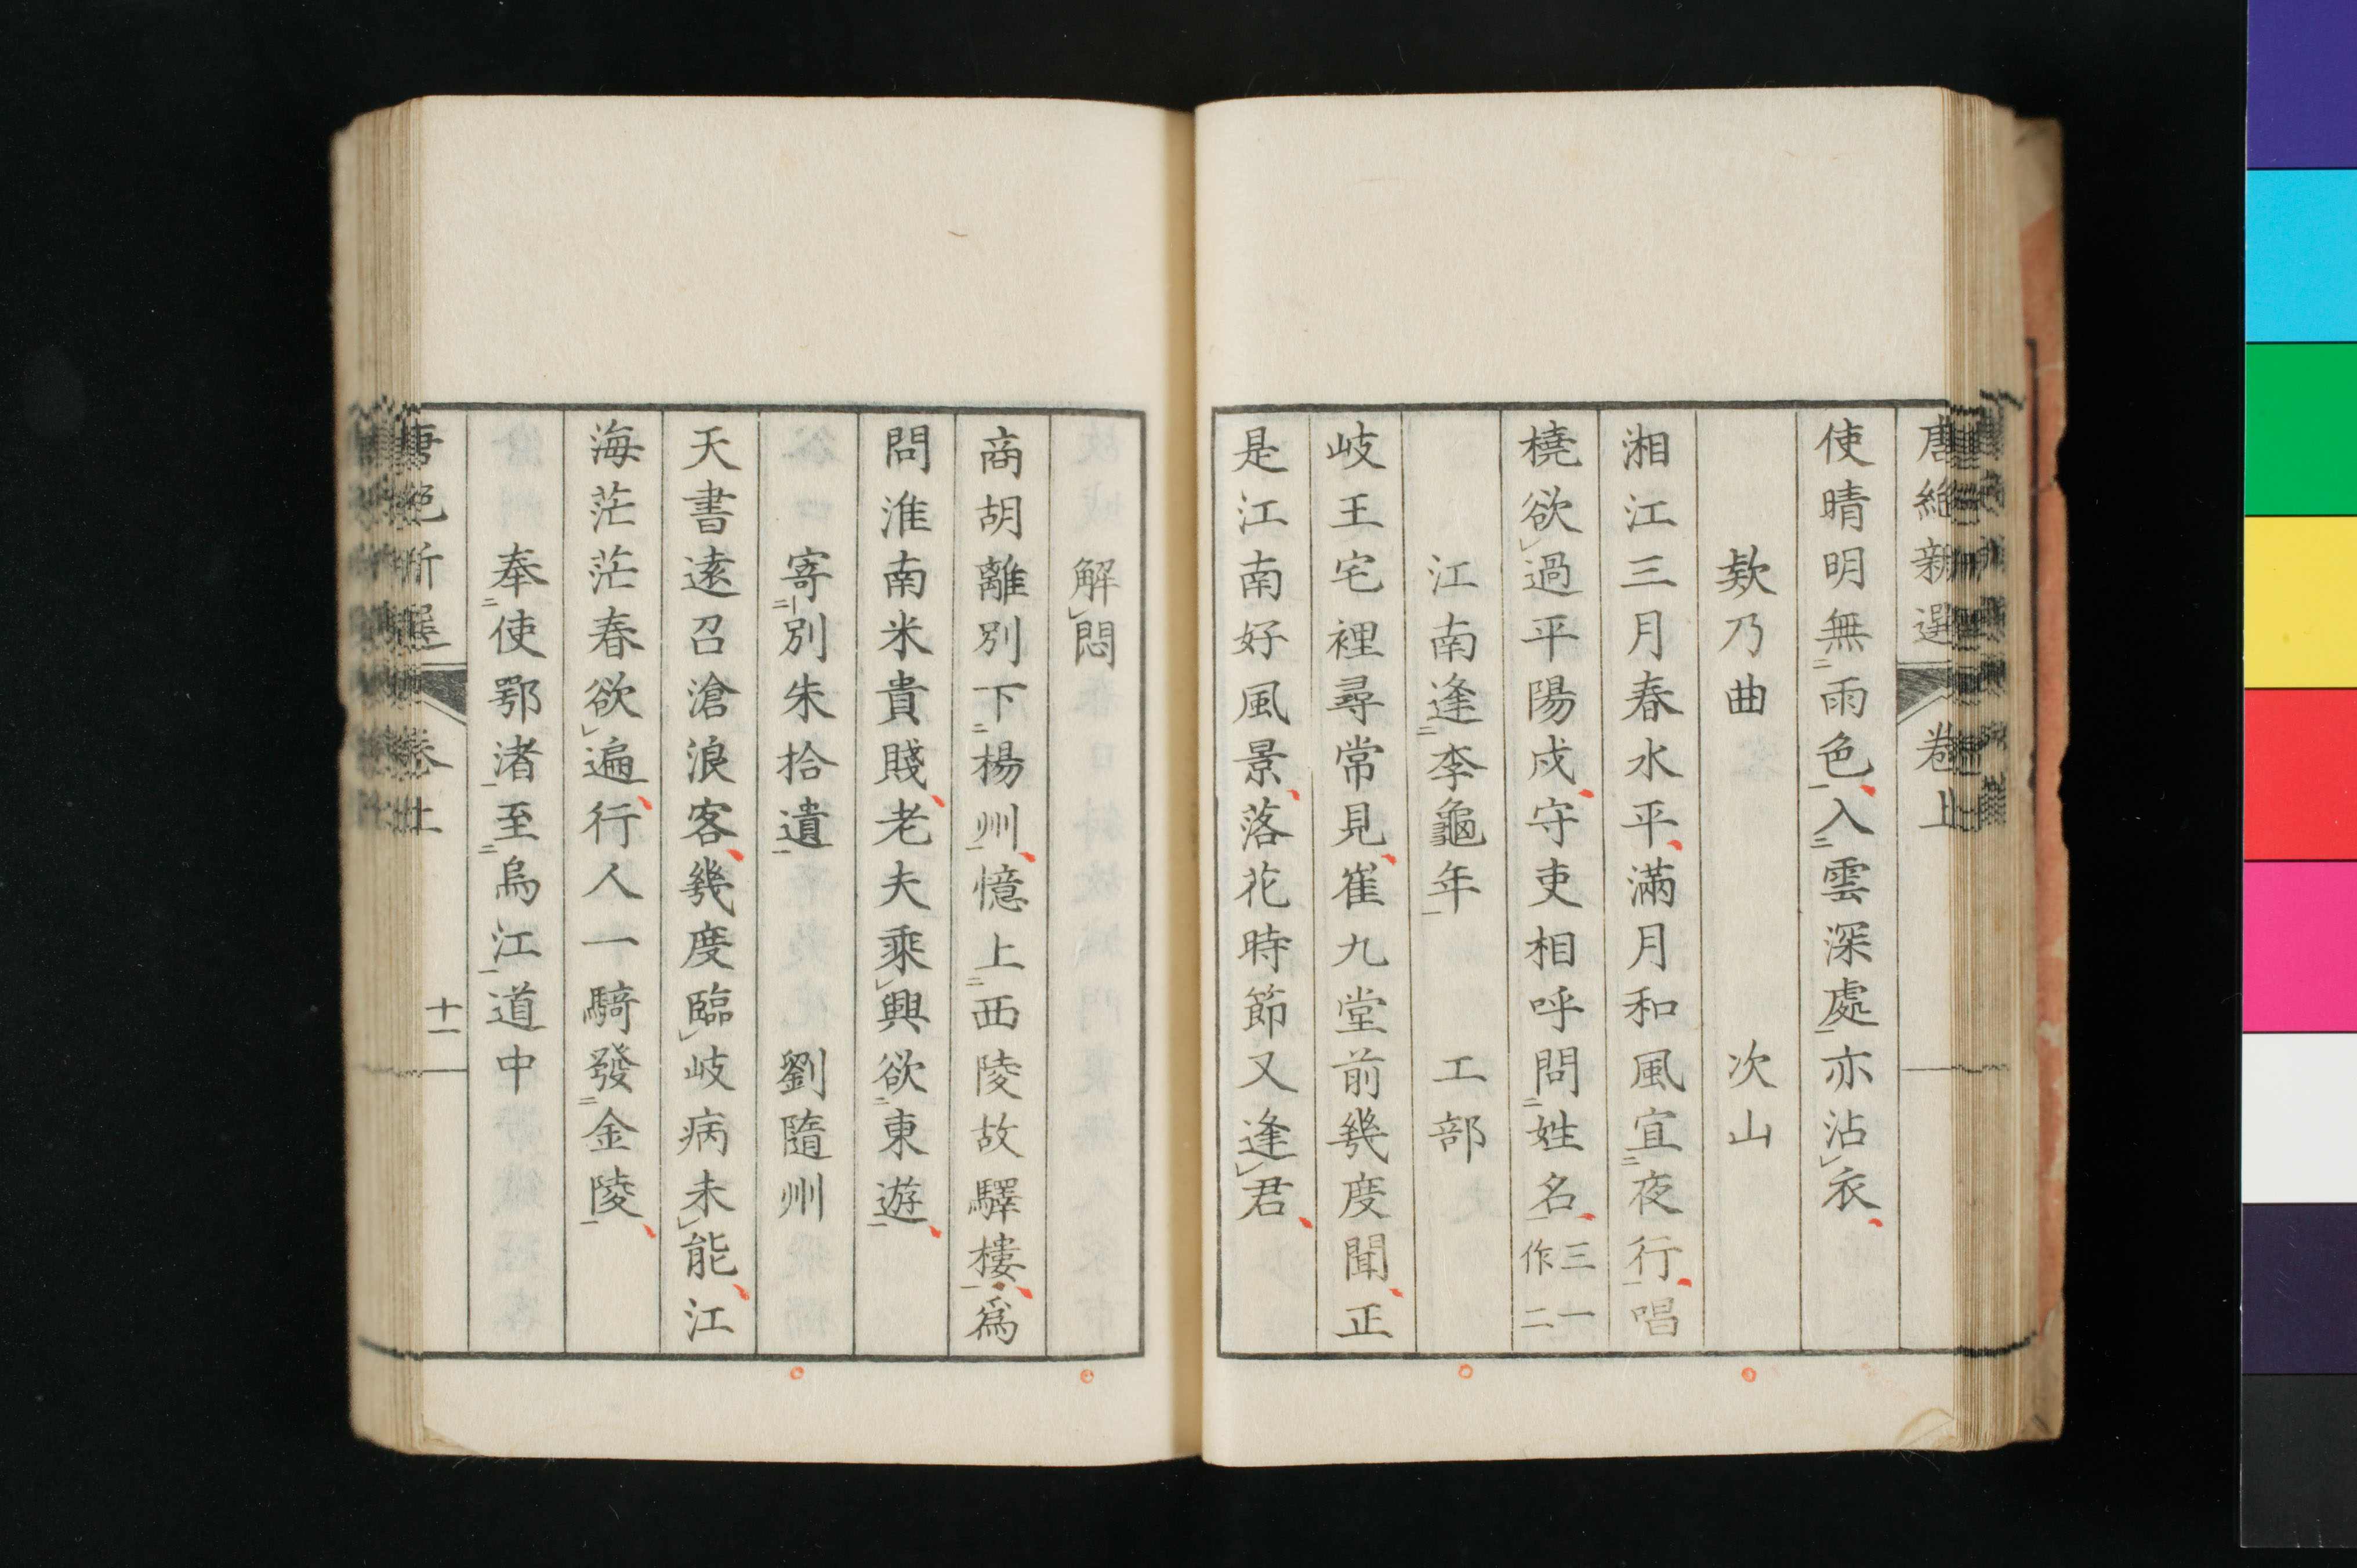 唐絶新選 卷上
使晴明無雨色入雲深處亦沾衣
欸乃曲 次山
湘江三月春水平滿月和風宜夜行唱
橈欲過平陽戍守吏相呼問姓名三一作二
江南逢李龜年 工部
岐王宅裡尋常見崔九堂前幾度聞正
是江南好風景落花時節又逢君
解悶
商胡離別下楊州憶上西陵故驛樓爲
問淮南米貴賤老夫乘興欲東遊
寄別朱拾遺 劉隨州
天書遠召滄浪客幾度臨岐病未能江
海茫茫春欲遍行人一騎發金陵
奉使鄂渚至烏江道中
唐絶新選 卷上 十一